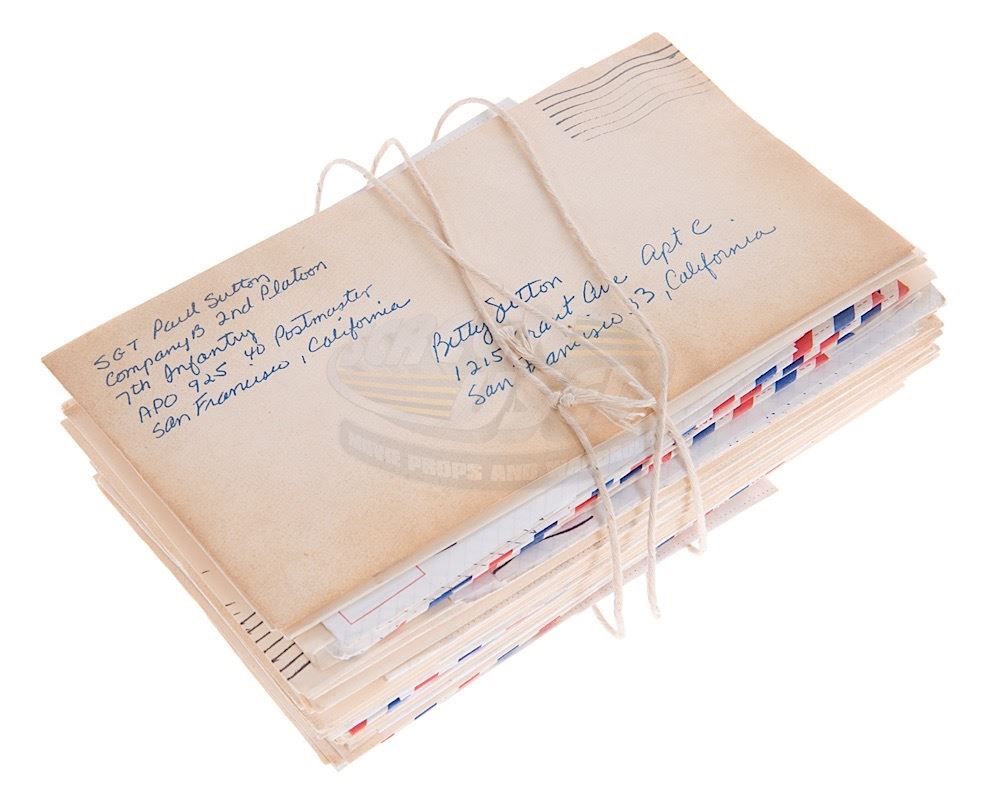 SGT Paul Sutton
Company B 2nd Platoon
7th Infantry
APO 925 40 Postmaster
San Francisco, California
Betty Sutton
1215 Grant Ave Apt C.
San Francisco, 33, California
MOVIE PROPS AND